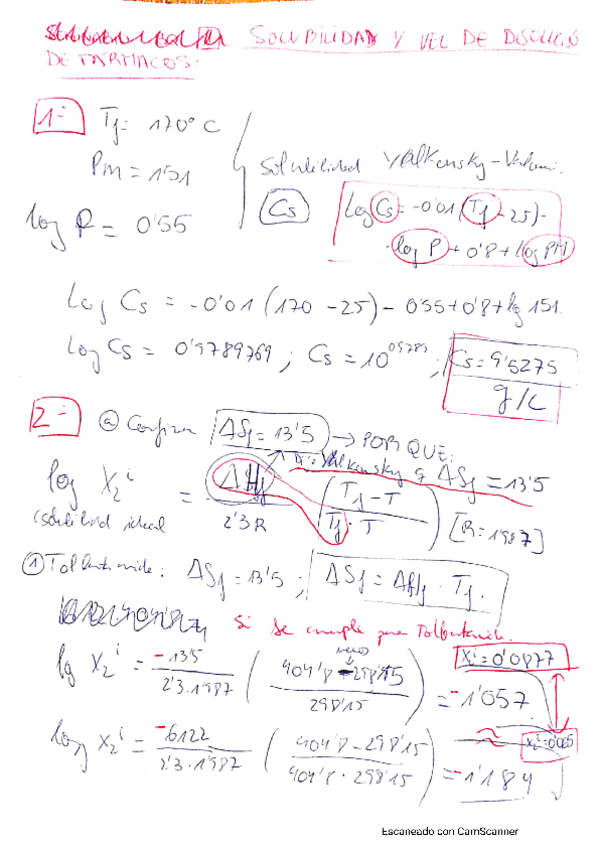 SOLUBILIDAD Y VEL DE DISOLUCIÓN
DE FÁRMACOS:
1-
Tf = 170º C
PM = 151
log P = 0'55
Solubilidad Yalkensky-Valvani.
Cs
log Cs = -0'01 (Tf - 25) -
- log P + 0'8 + log PM
Log Cs = -0'01 (170 - 25) - 0'55 + 0'8 + log 151.
log Cs = 0'9789769 ; Cs = 10^0'9789 ; Cs = 9'5275
g/L
2-
a) Confirm ΔSf = 13'5 → POR QUE:
Yalkensky ΔSf = 13'5
log X2^i = ΔHf / 2'3 R (Tf - T / Tf · T) [R = 1'987]
(solubilidad ideal
① Tolbutamida: ΔSf = 13'5 ; ΔSf = ΔHf · Tf.
Si se cumple para Tolbutamida.
log X2^i = -13'5 / 2'3 · 1'987 (404'8 - 298'15 / 298'15) = -1'057
menos
X2^i = 0'0877
log X2^i = -6122 / 2'3 · 1'987 (404'8 - 298'15 / 404'8 · 298'15) = -1'184
≈
X2^i = 0'065
Escaneado con CamScanner